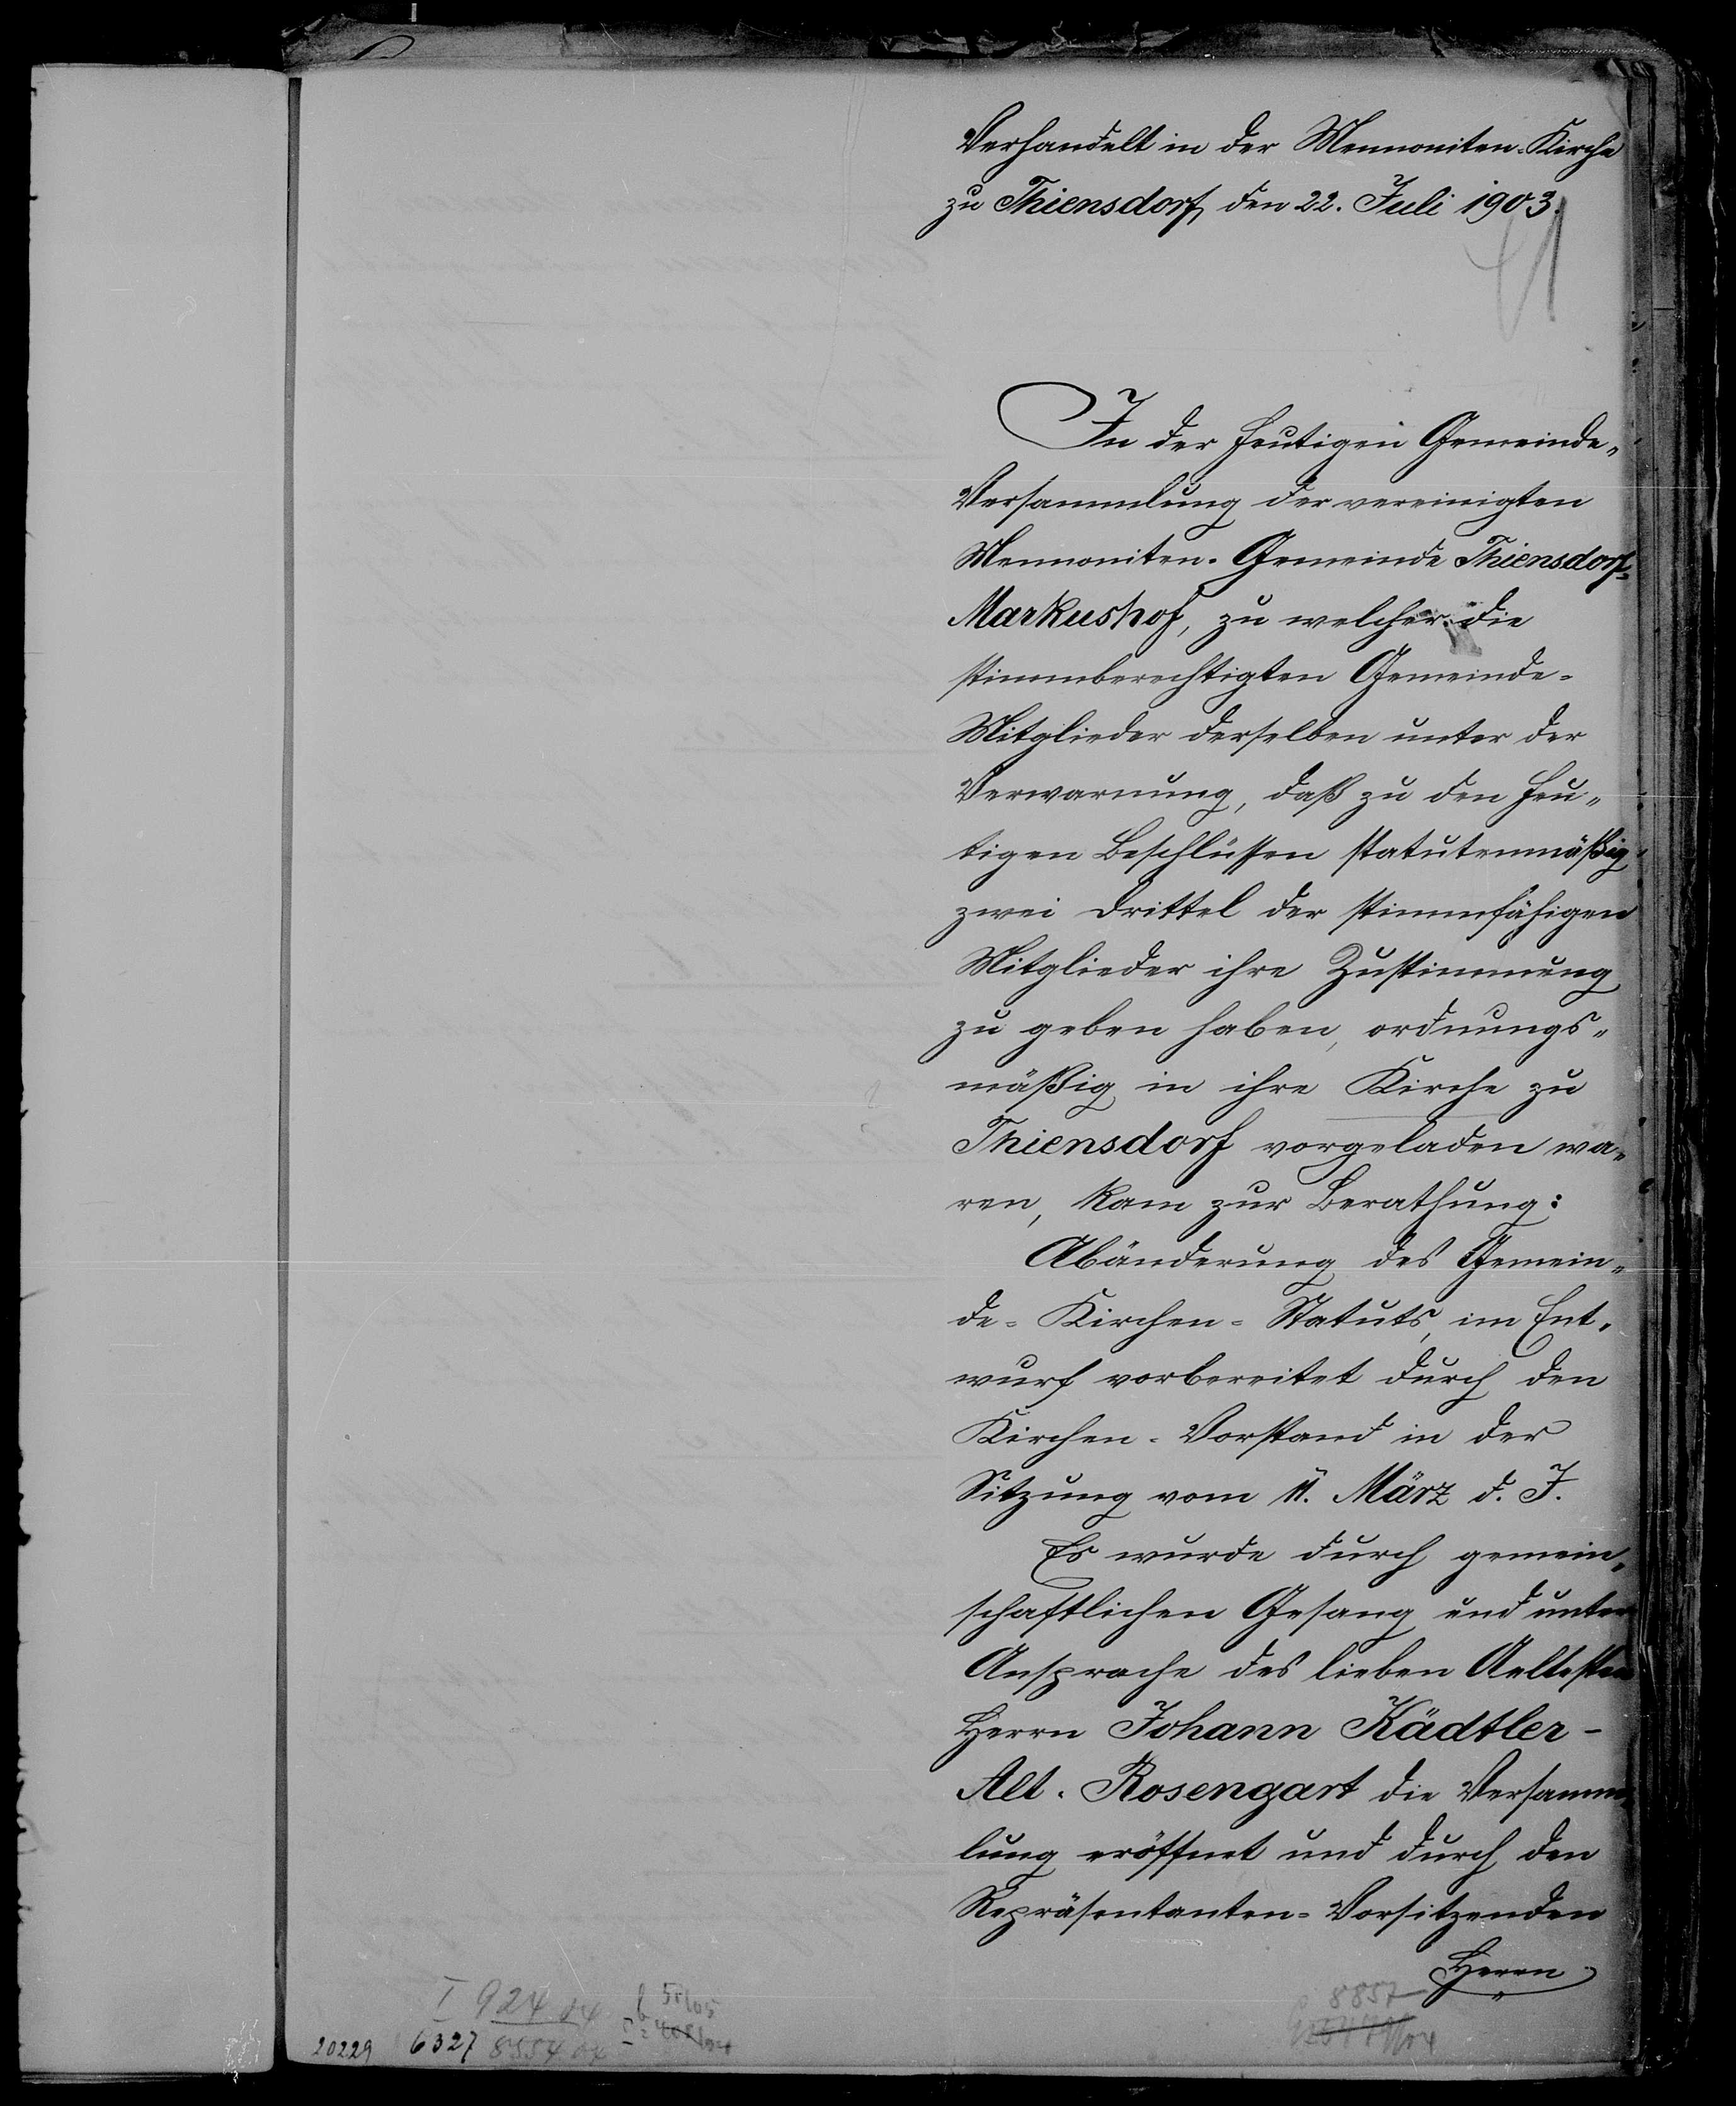 Verhandelt in der Mennoniten-Kirche
zu Thiensdorf, den 22. Juli 1903.
In der heutigen Gemeinde-
Versammlung der vereinigten
Mennoniten-Gemeinde Thiensdorf-
Markushof, zu welcher die
stimmberechtigten Gemeinde-
Mitglieder derselben unter der
Verwarnung, daß zu den heu-
tigen Beschlüssen statutenmäßig
zwei Drittel der stimmfähigen
Mitglieder ihre Zustimmung
zu geben haben, ordnungs-
mäßig in ihre Kirche zu
Thiensdorf vorgeladen wa-
ren, kam zur Berathung:
Abänderung des Gemein-
de-Kirchen-Statuts, im Ent-
wurf vorbereitet durch den
Kirchen-Vorstand in der
Sitzung vom 11. März d. J.
Es wurde durch gemein-
schaftlichen Gesang und unter
Ansprache des lieben Aeltesten
Herrn Johann Kädtler-
Alt-Rosengart die Versamm-
lung eröffnet und durch den
Repräsentanten-Vorsitzenden
Herrn
I 924 04
20229 6327 8554 04
8857